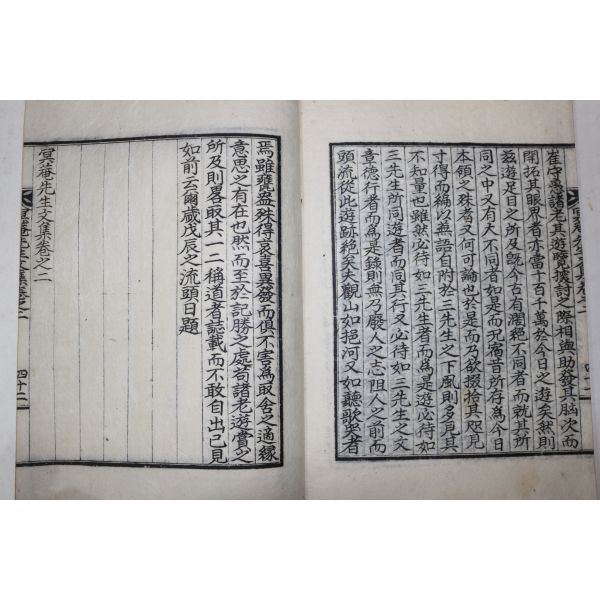 崔守愚諸老其遊覽摸討之際相與助發其胸次而
開拓其眼界者亦當十百千萬於今日之遊矣然則
玆遊足目之所及旣今古有濶絶不同者而就其所
同之中又有大不同者如是而況宿昔所存爲今日
本領之殊者又何可論也於是而乃欲掇拾其咫見
寸得而編以蕪語自附於三先生之下風則多見其
不知量也雖然必待如三先生者而爲是遊必待如
三先生所同遊者而同其行又必待如三先生之文
章德行者而爲是錄則無乃廢人之志阻人之前而
頭流從此遊跡絶矣夫觀山如挹河又如聽歌哭者
焉雖甕盎殊得哀喜異發而俱不害爲取舍之適緣
意思之有在也然而至於記勝之處苟諸老遊賞之
所及則畧取其一二稱道者誌載而不敢自出己見
如前云爾歲戊辰之流頭日題
冥菴先生文集卷之二
四十二